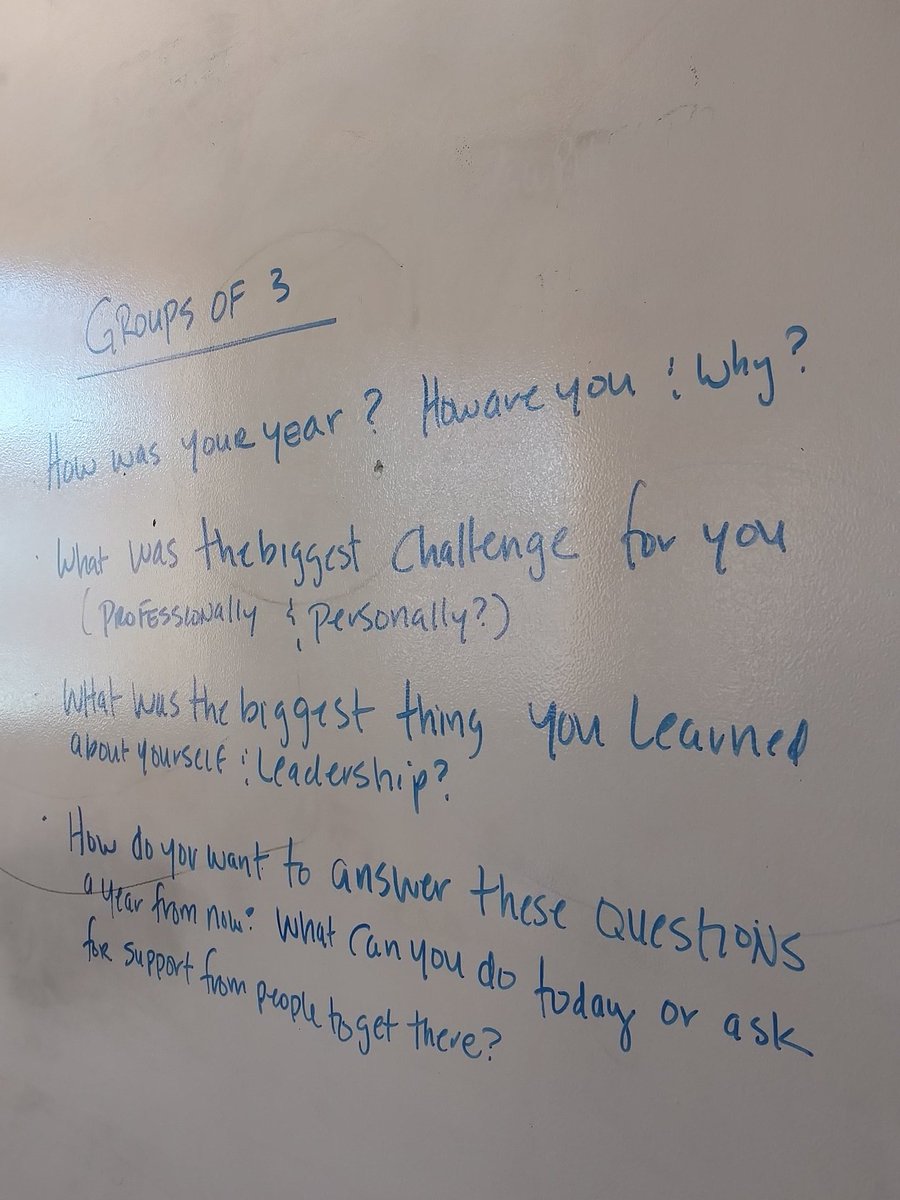 GROUPS OF 3
How was your year? How are you & why?
· What was the biggest challenge for you
(professionally & personally?)
· What was the biggest thing you learned
about yourself & leadership?
· How do you want to answer these questions
a year from now? What can you do today or ask
for support from people to get there?